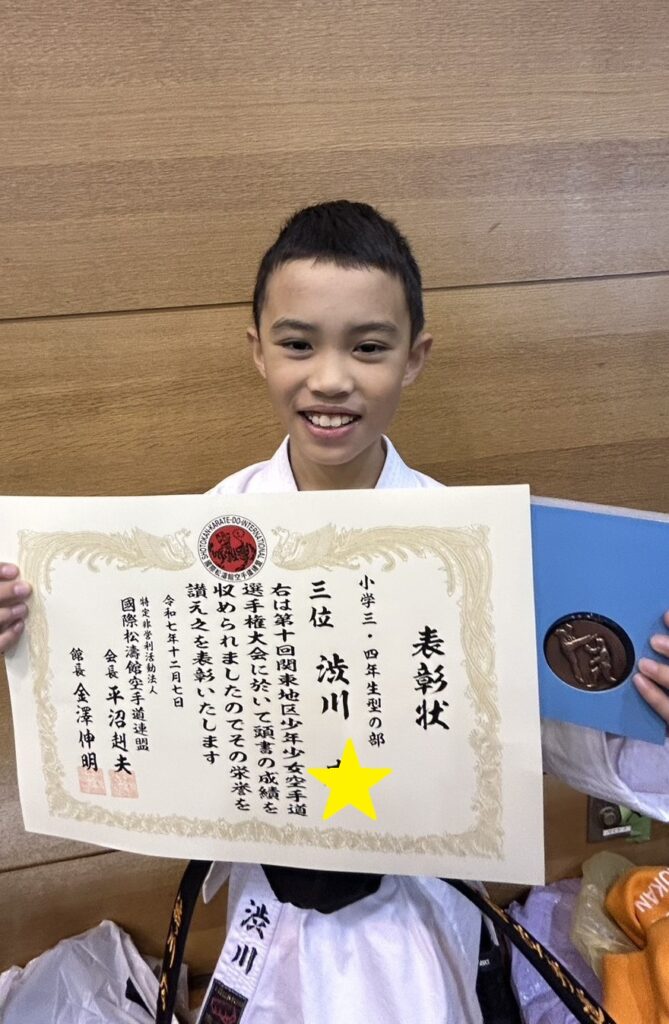 SHOTOKAN-KARATE-DO INTERNATIONAL
表彰状
小学三・四年生型の部
三位 渋川
右は第十回関東地区少年少女空手道
選手権大会に於いて頭書の成績を
収められましたのでその栄誉を
讃え之を表彰いたします
令和七年十二月七日
特定非営利活動法人
國際松濤館空手道連盟
会長 平沼赳夫
館長 金澤伸明
渋川